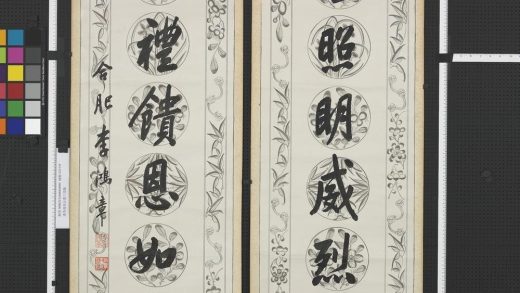 照明威烈
禮饋恩如
合肥李鴻章